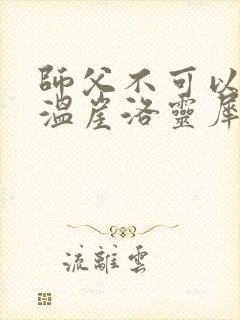 師父不可以
溫崖洛靈犀
流離雲